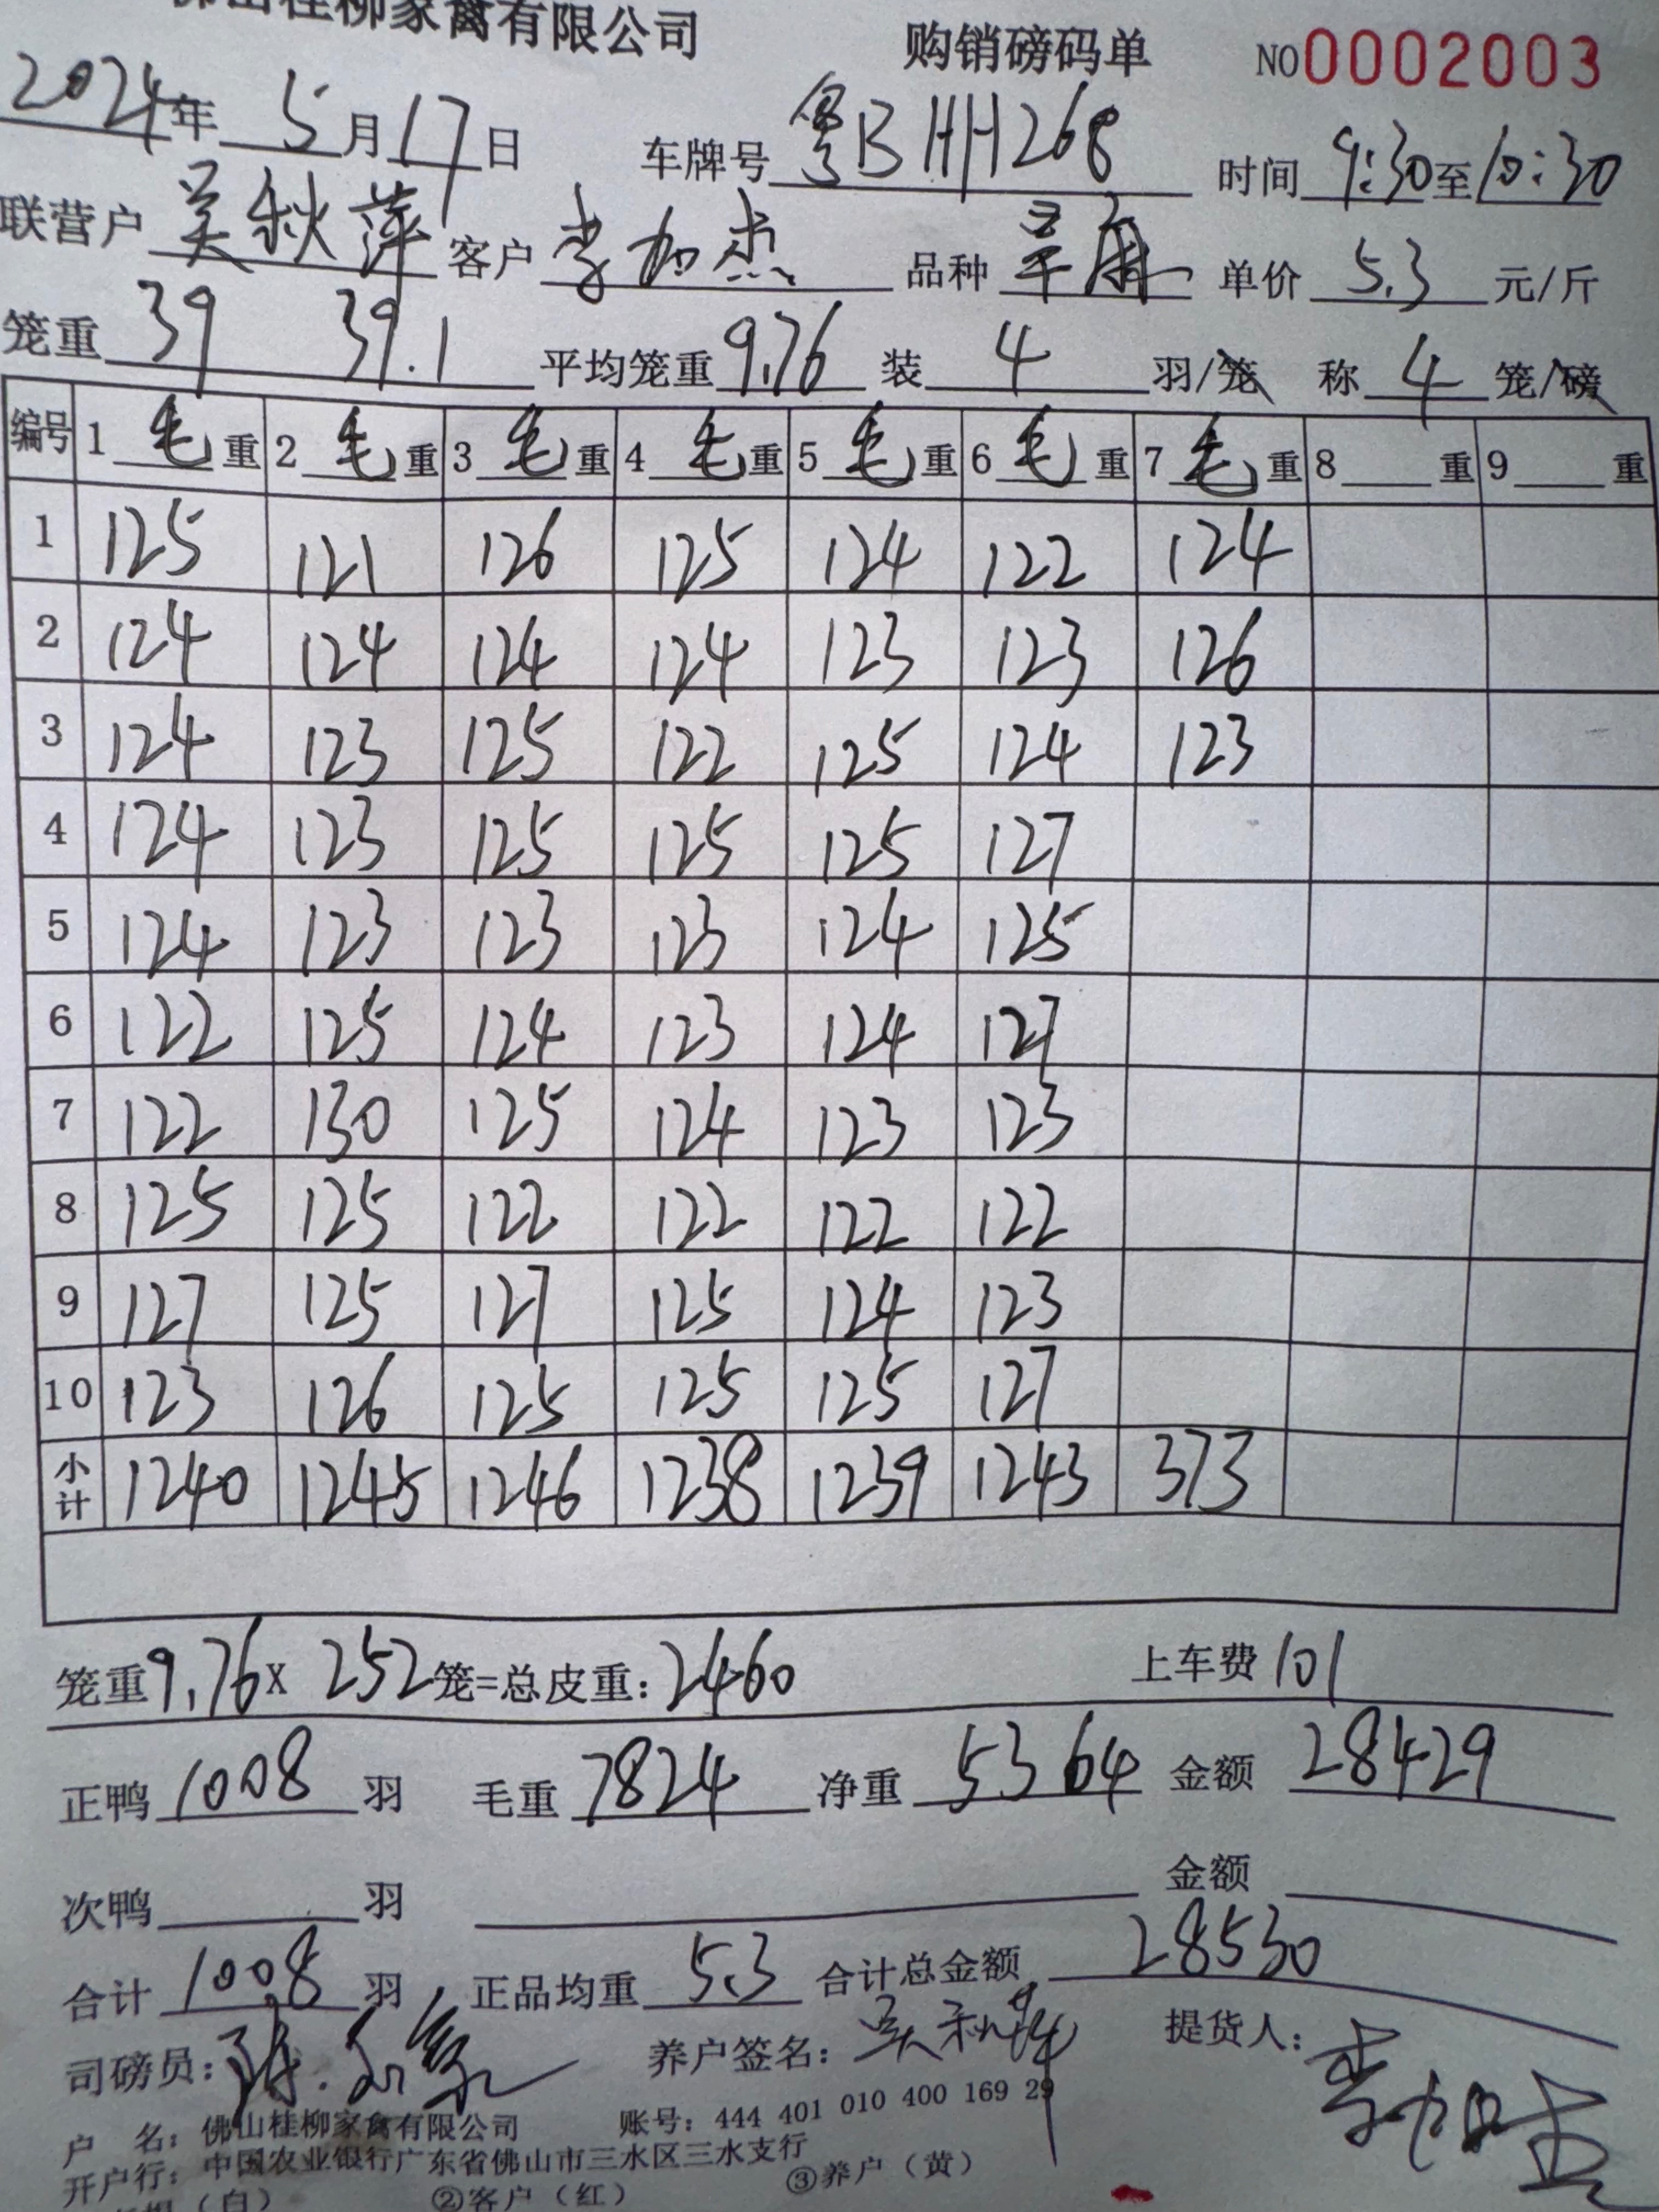 佛山桂柳家禽有限公司 购销磅码单 NO 0002003
2024年 5月17日 车牌号 粤BHH268 时间 9:30至10:30
联营户 吴秋萍 客户 李加杰 品种 单价 5.3 元/斤
笼重 39 39.1 平均笼重 9.76 装 4 羽/笼 称 4 笼/磅
编号 1 毛 重 2 毛 重 3 毛 重 4 毛 重 5 毛 重 6 毛 重 7 毛 重 8 重 9 重
1 125 121 126 125 124 122 124
2 124 124 124 124 123 123 126
3 124 123 125 122 125 124 123
4 124 123 125 125 125 127
5 124 123 123 123 124 125
6 122 125 124 123 124 127
7 122 130 125 124 123 123
8 125 125 122 122 122 122
9 127 125 127 125 124 123
10 123 126 125 125 125 127
小计 1240 1245 1246 1238 1239 1243 373
笼重9.76 X 252笼=总皮重:2460 上车费 101
正鸭 1008 羽 毛重 7824 净重 5364 金额 28429
次鸭 羽 金额
合计 1008 羽 正品均重 5.3 合计总金额 28530
司磅员: 养户签名:吴秋萍 提货人:李加杰
户 名:佛山桂柳家禽有限公司 账号:444 401 010 400 169 29
开户行:中国农业银行广东省佛山市三水区三水支行
(白) ②客户(红) ③养户(黄)